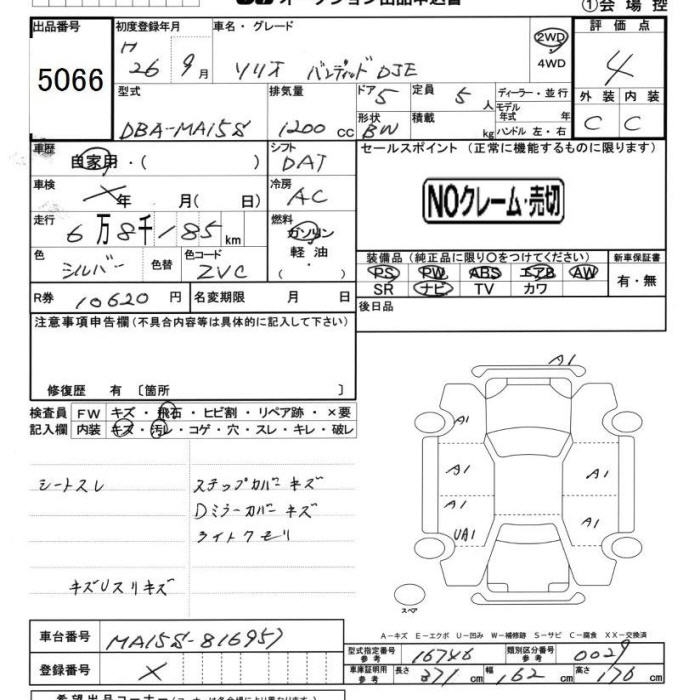 ①会場控
出品番号 初度登録年月 車名・グレード 2WD 評価点
5066 H 26 9月 ソリオ バンディッド DJE 4WD 4
型式 排気量 ドア 5 定員 5人 ディーラー・並行 外装 内装
DBA-MA15S 1200cc 形状 BW 積載 kg モデル年式 年 C C
ハンドル 左・右
車歴 自家用・( ) シフト DAT セールスポイント(正常に機能するものに限ります)
車検 ×年 月( 日) 冷房 AC NOクレーム・売切
走行 6万8千185km 燃料 ガソリン
軽油
色 シルバー 色替 色コード ZVC 装備品(純正品に限り○をつけてください) 新車保証書
PS PW ABS エアB AW 有・無
R券 10620円 名変期限 月 日 SR ナビ TV カワ
注意事項申告欄(不具合内容等は具体的に記入して下さい) 後日品
修復歴 有〔箇所 〕
検査員 FW キズ・飛石・ヒビ割・リペア跡・×要
記入欄 内装 キズ・汚レ・コゲ・穴・スレ・キレ・破レ
A1
A1
シートスレ ステップカバーキズ A1 A1
Dミラーカバーキズ A1 A1
ライトクモリ UA1
キズUスリキズ
スペア
A-キズ E-エクボ U-凹み W-補修跡 S-サビ C-腐食 XX-交換済
車台番号 MA15S-816957 型式指定番号 参考 16746 類別区分番号 参考 0029
登録番号 × 車庫証明用 参考 長さ 371cm 幅 162cm 高さ 176cm